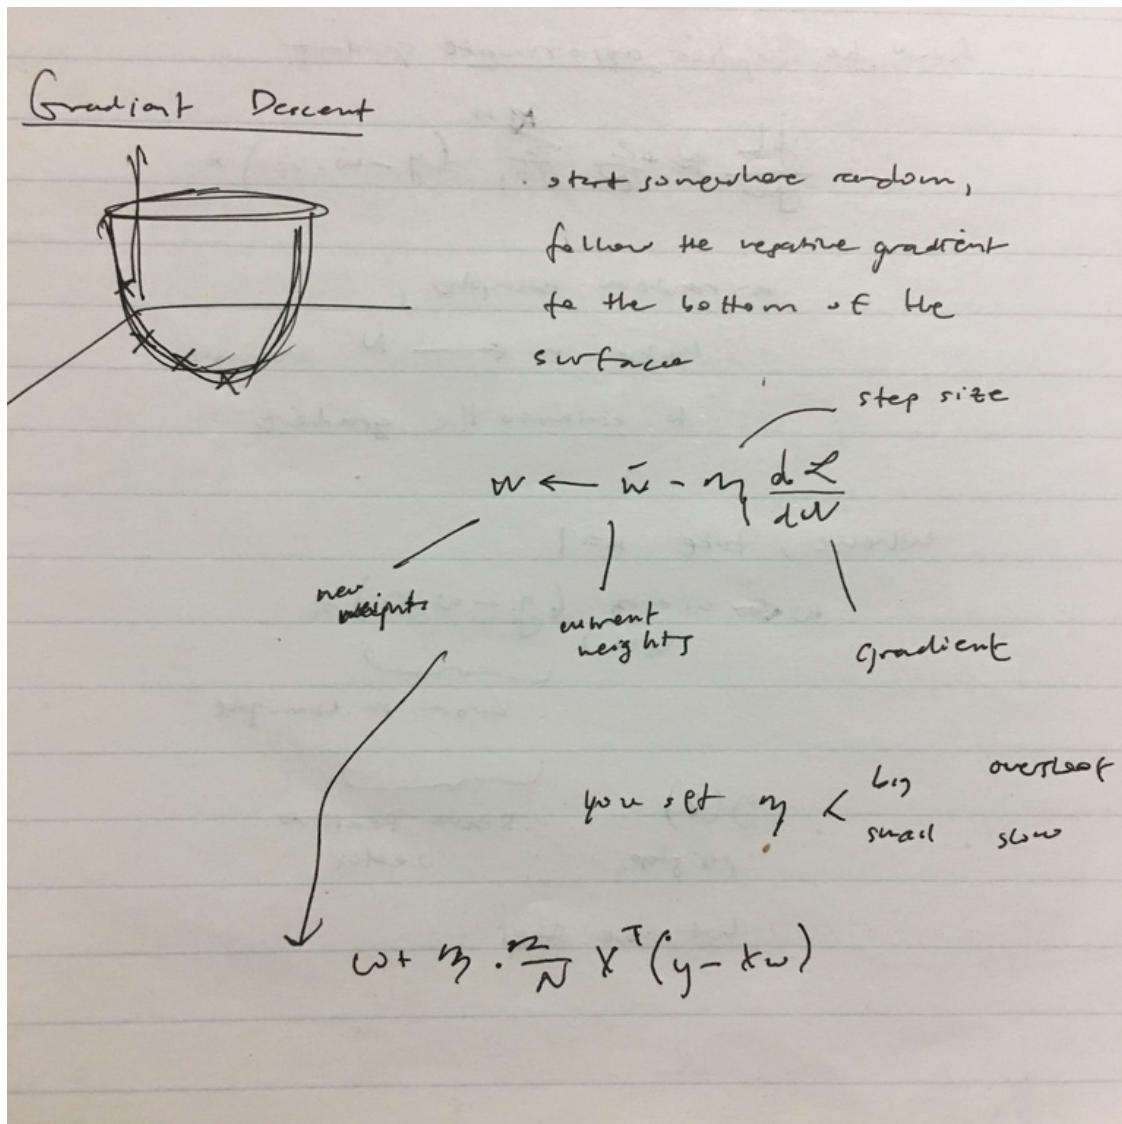 Gradient Descent
start somewhere random,
follow the negative gradient
to the bottom of the
surface
step size
w ← w - η dL/dw
new weights
current weights
gradient
you set η < big overshoot
small slow
w + η · 2/N Xᵀ(y - Xw)